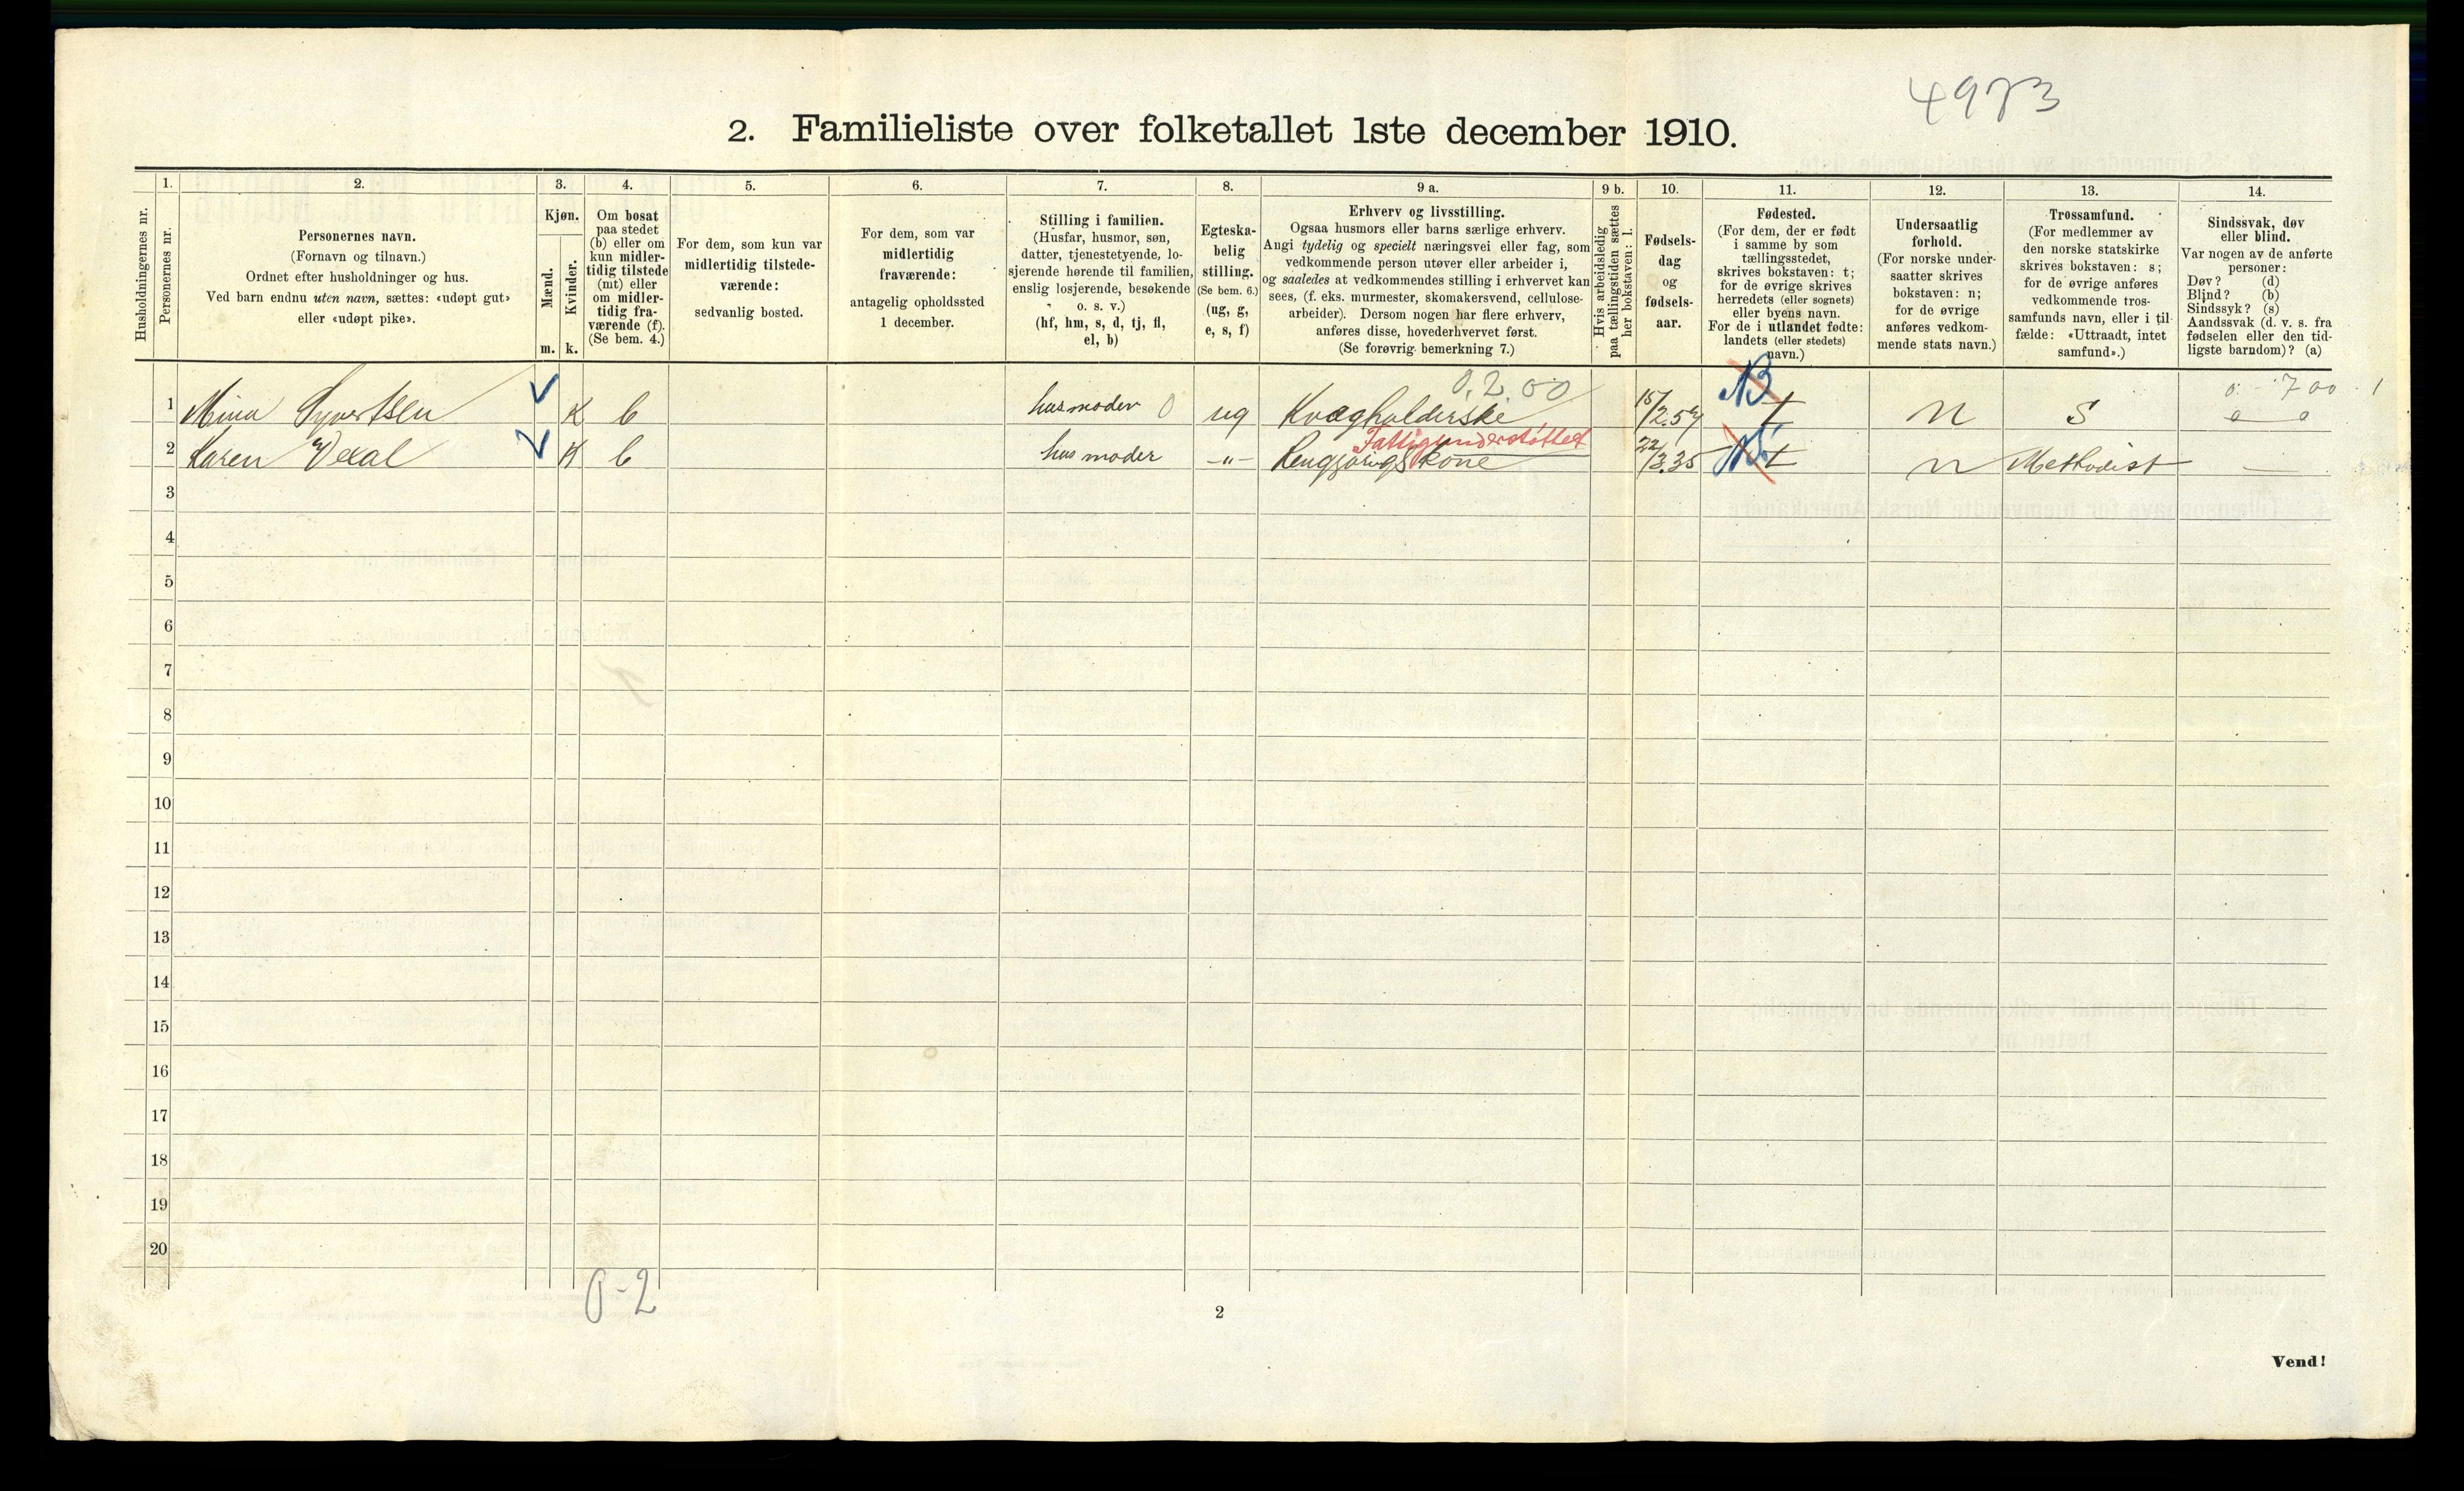 4973
2. Familieliste over folketallet 1ste december 1910.
Husholdningernes nr.
1.
Personernes nr.
2.
Personernes navn.
(Fornavn og tilnavn.)
Ordnet efter husholdninger og hus.
Ved barn endnu uten navn, sættes: «udøpt gut»
eller «udøpt pike».
3.
Kjøn.
Mænd.
Kvinder.
m. k.
4.
Om bosat
paa stedet
(b) eller om
kun midler-
tidig tilstede
(mt) eller
om midler-
tidig fra-
værende (f).
(Se bem. 4.)
5.
For dem, som kun var
midlertidig tilstede-
værende:
sedvanlig bosted.
6.
For dem, som var
midlertidig
fraværende:
antagelig opholdssted
1 december.
7.
Stilling i familien.
(Husfar, husmor, søn,
datter, tjenestetyende, lo-
sjerende hørende til familien,
enslig losjerende, besøkende
o. s. v.)
(hf, hm, s, d, tj, fl,
el, b)
8.
Egteska-
belig
stilling.
(Se bem. 6.)
(ug, g,
e, s, f)
9 a.
Erhverv og livsstilling.
Ogsaa husmors eller barns særlige erhverv.
Angi tydelig og specielt næringsvei eller fag, som
vedkommende person utøver eller arbeider i,
og saaledes at vedkommendes stilling i erhvervet kan
sees, (f. eks. murmester, skomakersvend, cellulose-
arbeider). Dersom nogen har flere erhverv,
anføres disse, hovederhvervet først.
(Se forøvrig bemerkning 7.)
9 b.
Hvis arbeidsledig
paa tællingstiden sættes
her bokstaven: l.
10.
Fødsels-
dag
og
fødsels-
aar.
11.
Fødested.
(For dem, der er født
i samme by som
tællingsstedet,
skrives bokstaven: t;
for de øvrige skrives
herredets (eller sognets)
eller byens navn.
For de i utlandet fødte:
landets (eller stedets)
navn.)
12.
Undersaatlig
forhold.
(For norske under-
saatter skrives
bokstaven: n;
for de øvrige
anføres vedkom-
mende stats navn.)
13.
Trossamfund.
(For medlemmer av
den norske statskirke
skrives bokstaven: s;
for de øvrige anføres
vedkommende tros-
samfunds navn, eller i til-
fælde: «Uttraadt, intet
samfund».)
14.
Sindssvak, døv
eller blind.
Var nogen av de anførte
personer:
Døv? (d)
Blind? (b)
Sindssyk? (s)
Aandssvak (d. v. s. fra
fødselen eller den tid-
ligste barndom)? (a)
0.2.00
0 700 1
1 Mina Syvertsen K b husmoder 0 ug Kvægholderske 15/2.57 t n S
Fattigunderstøttet
2 Karen Vexal K b husmoder -"- Rengjørigskone 22/3.35 t n Methodist —
3
4
5
6
7
8
9
10
11
12
13
14
15
16
17
18
19
20
0-2
2
Vend!